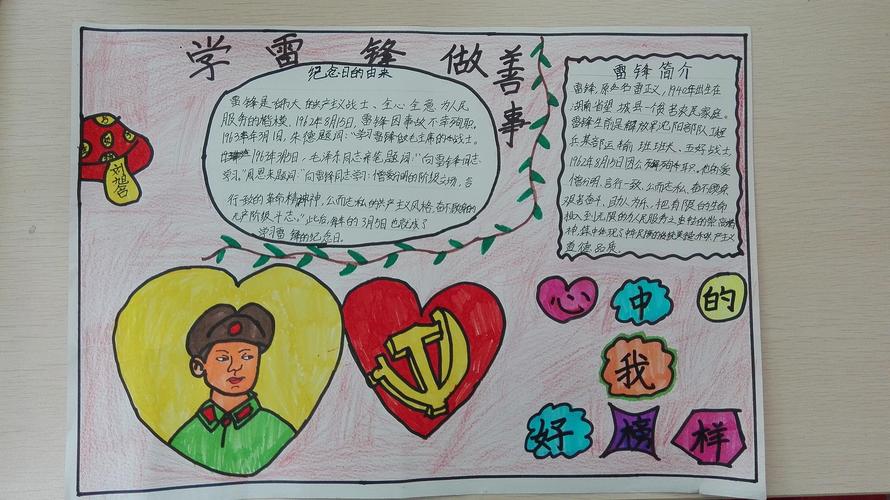 学雷锋做善事
纪念日的由来
雷锋是伟大的共产主义战士、全心全意为人民
服务的楷模。1962年8月15日，雷锋因事故不幸殉职。
1963年3月1日，朱德题词："学习雷锋做毛主席的好战士。
1963年3月5日，毛泽东同志亲笔题词："向雷锋同志
学习。"周恩来题词："向雷锋同志学习：憎爱分明的阶级立场，言
行一致的革命精神，公而忘私的共产主义风格，奋不顾身的
无产阶级斗志。"此后，每年的3月5日也就成了
学习雷锋的纪念日。
雷锋简介
雷锋，原名雷正义，1940年出生在
湖南省望城县一个贫农民家庭。
雷锋生前是解放军沈阳部队工程
兵某部运输班班长、五好战士
1962年8月15日因公殉职。他的爱
憎分明、言行一致、公而忘私、奋不顾身
艰苦奋斗、助人为乐，把有限的生命
投入到无限的为人民服务之中去的崇高精
神，集中体现了
道德品质
刘旭
心中的
我
好榜样